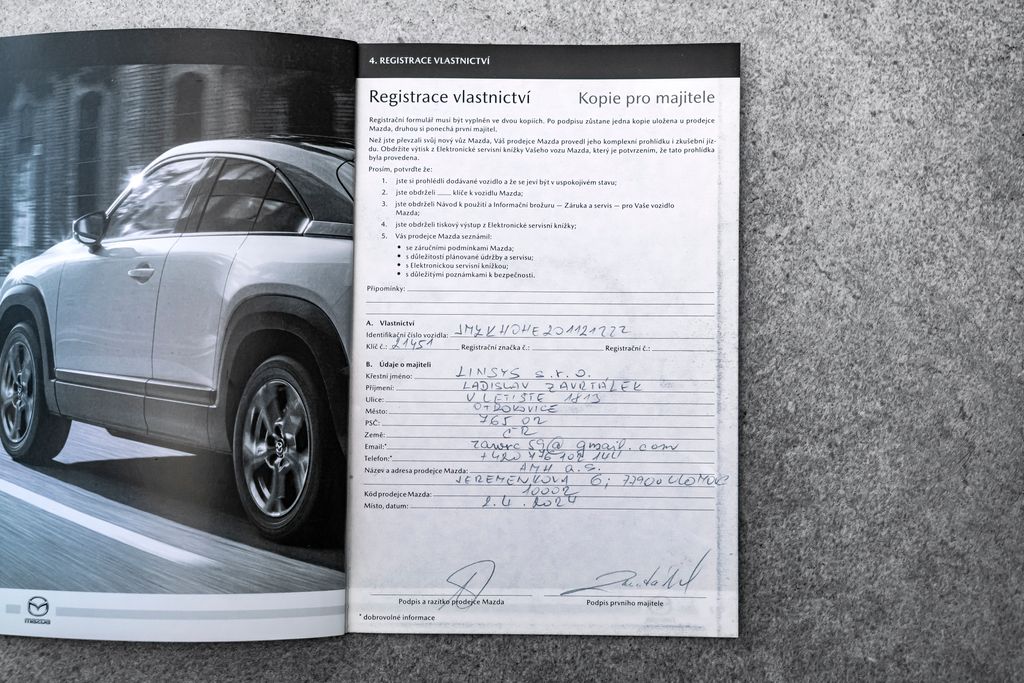 4. REGISTRACE VLASTNICTVÍ
Registrace vlastnictví Kopie pro majitele
Registrační formulář musí být vyplněn ve dvou kopiích. Po podpisu zůstane jedna kopie uložena u prodejce
Mazda, druhou si ponechá první majitel.
Než jste převzali svůj nový vůz Mazda, Váš prodejce Mazda provedl jeho komplexní prohlídku i zkušební jíz-
du. Obdržíte výtisk z Elektronické servisní knížky Vašeho vozu Mazda, který je potvrzením, že tato prohlídka
byla provedena.
Prosím, potvrďte že:
1. jste si prohlédli dodávané vozidlo a že se jeví být v uspokojivém stavu;
2. jste obdrželi ...... klíče k vozidlu Mazda;
3. jste obdrželi Návod k použití a Informační brožuru — Záruka a servis — pro Vaše vozidlo
Mazda;
4. jste obdrželi tiskový výstup z Elektronické servisní knížky;
5. Vás prodejce Mazda seznámil:
• se záručními podmínkami Mazda;
• s důležitostí plánované údržby a servisu;
• s Elektronickou servisní knížkou;
• s důležitými poznámkami k bezpečnosti.
Připomínky:
A. Vlastnictví
Identifikační číslo vozidla:
Klíč č.: 21451 Registrační značka č.: Registrační č.:
B. Údaje o majiteli
Křestní jméno: LINSYS s.r.o.
Příjmení: LADISLAV ZAVRTÁLEK
Ulice: V LETIŠTĚ 1813
Město: OTROKOVICE
PSČ: 765 02
Země: ČR
Email:* zavrc59@gmail.com
Telefon:* +420
Název a adresa prodejce Mazda: AMH a.s.
JEREMENKOVA 6, 77900 OLOMOUC
Kód prodejce Mazda: 10002
Místo, datum: 2.4.2024
Podpis a razítko prodejce Mazda Podpis prvního majitele
* dobrovolné informace
mazda